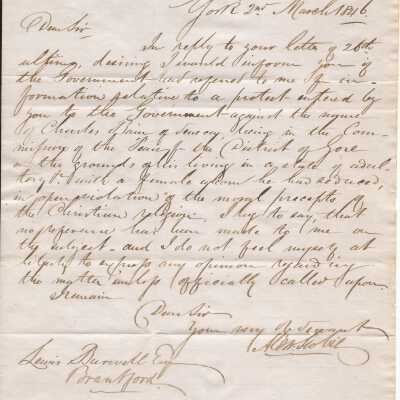 York 2nd March 1846.
Dear Sir
In reply to your letter of 26th
ultimo, desiring I would inform you if
the Government had referred to me for in-
formation relative to a protest entered by
you to the Government against the name
of Charles of Sim living in the Com-
mission of the Peace for the District of Gore
on the grounds of his living in a state of adul-
tery with a female whom he had seduced,
in open violation of the moral precepts of
the Christian religion. I beg to say, that
no reference has been made to me on
the subject - and I do not feel myself at
liberty to express any opinion regarding
the matter unless officially called upon.
I remain
Dear Sir
Your very Ob Servant
Lewis Burwell Esq
Brantford.